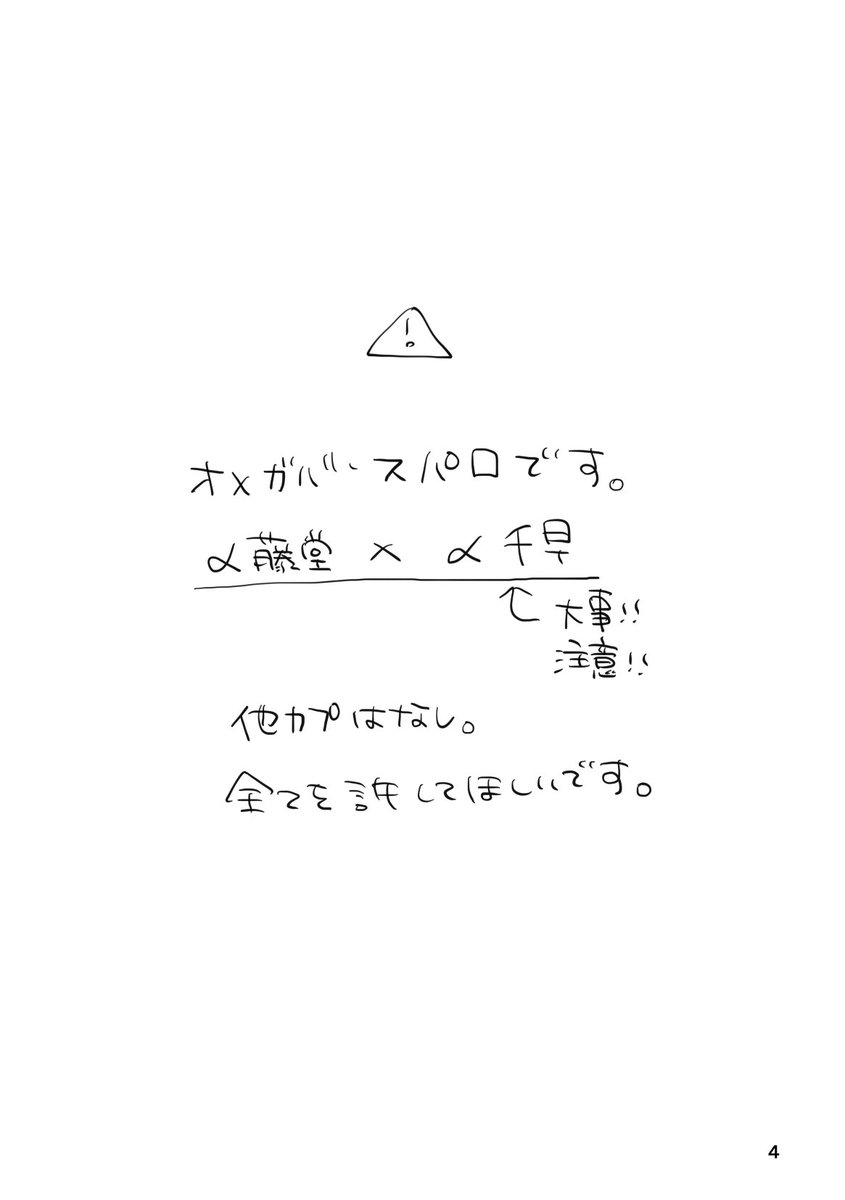 オメガバースパロです。
α藤堂 × α千早
↑大事!!
注意!!
他カプはなし。
全てを許してほしいです。
4